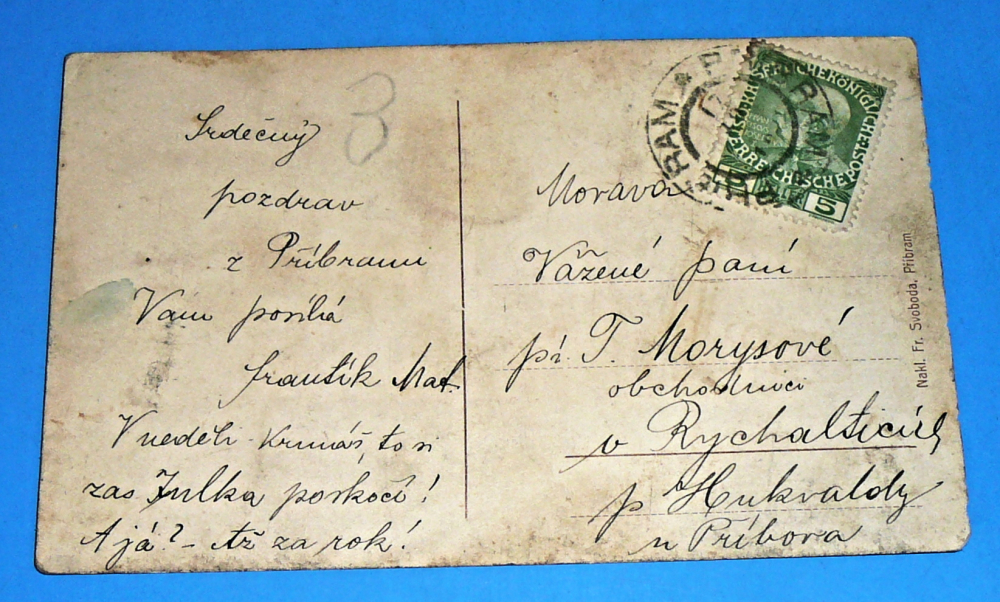 3
Srdečný
pozdrav
z Příbrami
Vám posílá
František Mat.
V neděli krmáš, to si
zas Julka poskočí!
A já? - Až za rok!
Morava
Vážené paní
pí. T. Morysové
obchodnici
v Rychalticích
p Hukvaldy
u Příbora
Nakl. Fr. Svoboda, Příbram.
PŘÍBRAM
5